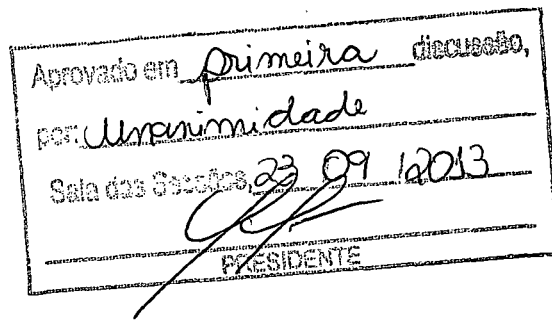 Aprovado em primeira discussão,
por: Unanimidade
Sala das Sessões, 23 09 /2013
PRESIDENTE